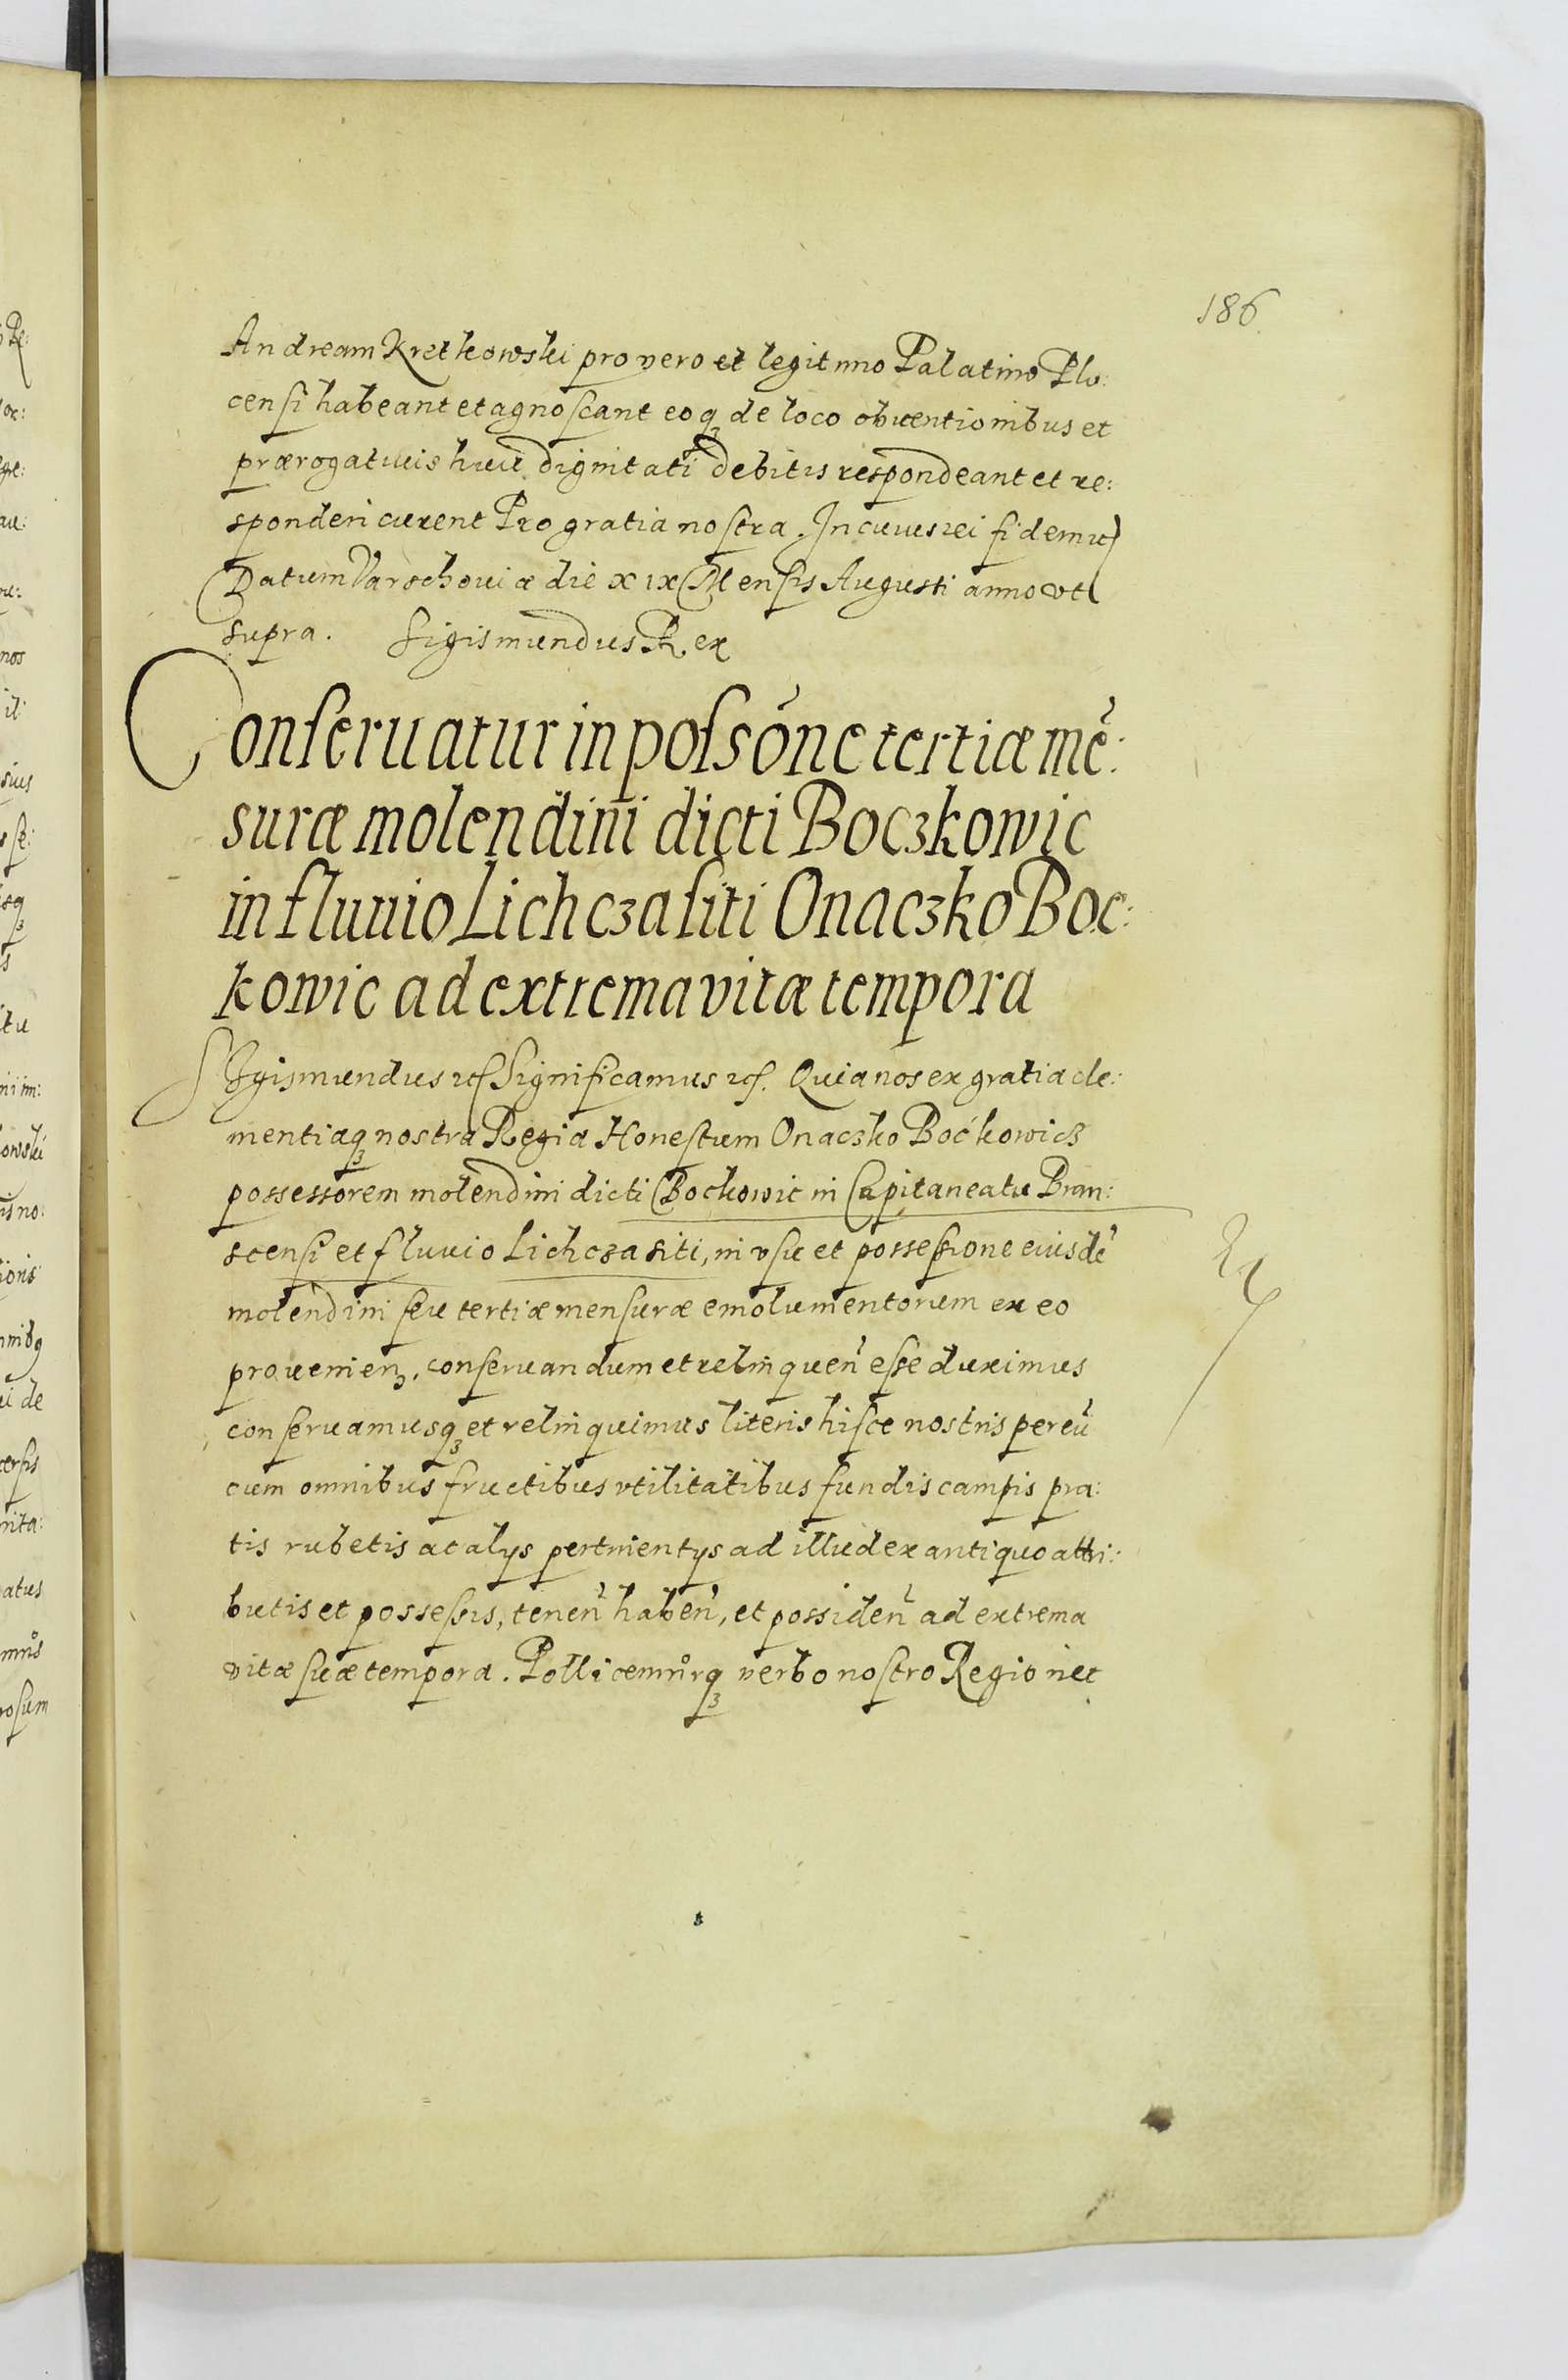 186
Andream Kretkowski pro vero et legitimo Palatino Plo:
censi habeant et agnoscant eoqꝫ de loco obventionibus et
prærogatiuis huic dignitati debitis respondeant et re:
sponderi curent Pro gratia nostra. In cuius rei fidem
Datum Varschouiæ die XIX Mensis Augusti anno vt
supra. Sigismundus Rex
Conseruatur in possōne tertiæ mē:
suræ molendini dicti Boczkowic
in fluuio Lichcza siti Onaczko Boc:
kowic ad extrema vitæ tempora
Sigismundus Significamus Quia nos ex gratia cle:
mentiaqꝫ nostra Regia Honestum Onaczko Bočkowicz
possessorem molendini dicti Bockowic in Capitaneatu Bran:
scensi et fluuio Lichcza siti, in vsu et possessione eiusdē
molendini seu tertiæ mensuræ emolumentorum ex eo
prouenienꝫ. conseruandum et relinquen̄ esse duximus
conseruamusqꝫ et relinquimus literis hisce nostris per eū
cum omnibus fructibus vtilitatibus fundis campis pra:
tis rubetis ac alys pertinentys ad illud ex antiquo attri:
butis et possessis, tenen̄ haben̄, et possiden̄ ad extrema
vitæ suæ tempora. Pollicemůrqꝫ verbo nostro Regio nec